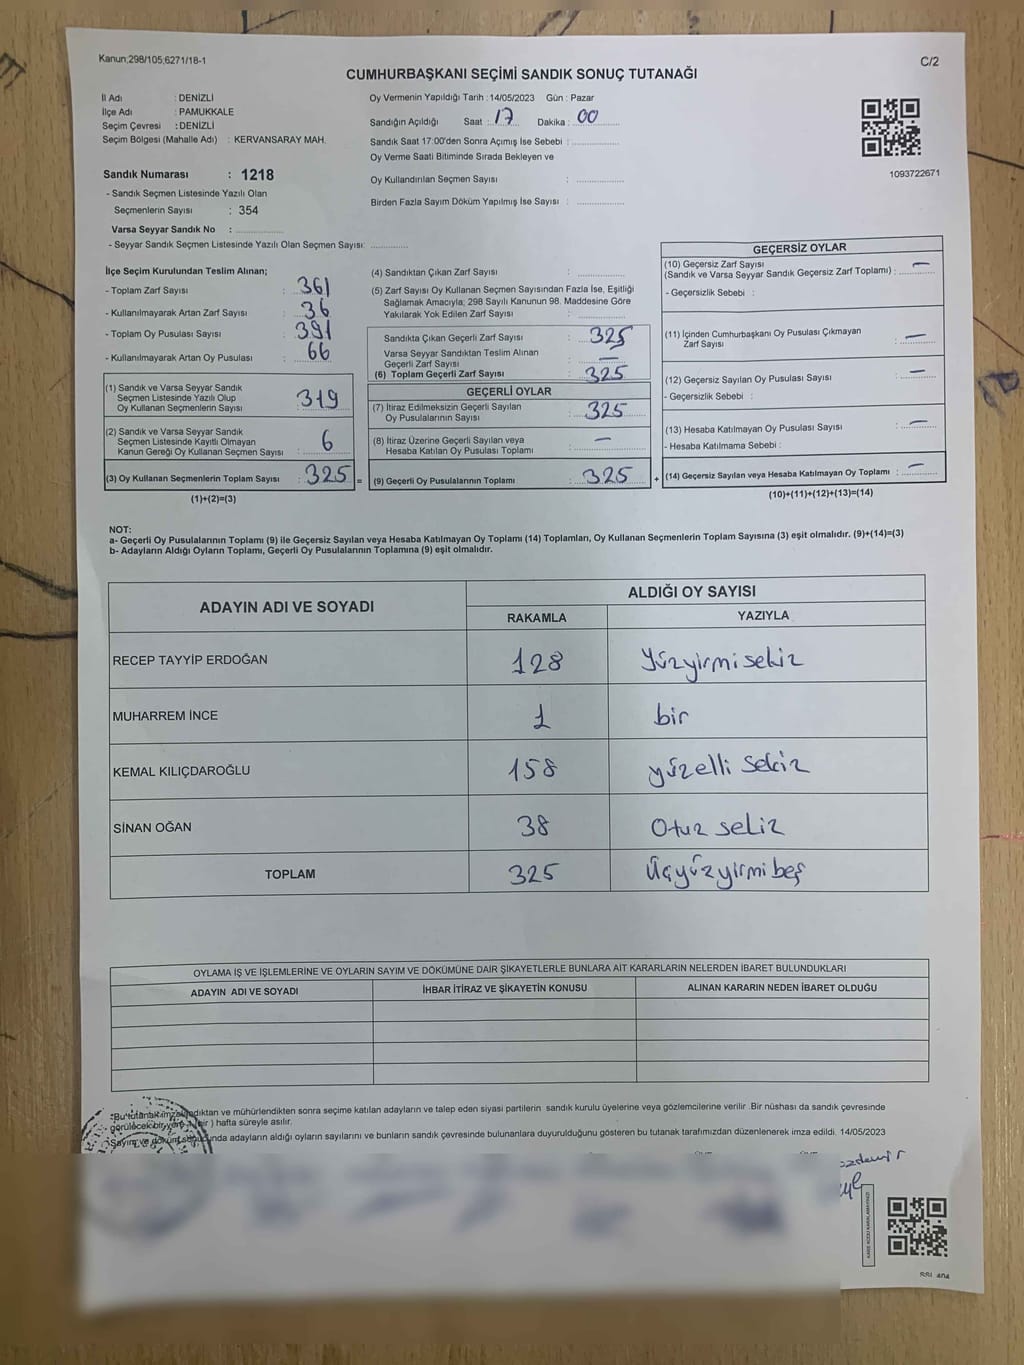 Kanun;298/105;6271/18-1
C/2
CUMHURBAŞKANI SEÇİMİ SANDIK SONUÇ TUTANAĞI
İl Adı : DENİZLİ
İlçe Adı : PAMUKKALE
Seçim Çevresi : DENİZLİ
Seçim Bölgesi (Mahalle Adı) : KERVANSARAY MAH.
Oy Vermenin Yapıldığı Tarih : 14/05/2023 Gün : Pazar
Sandığın Açıldığı Saat : 17 Dakika : 00
Sandık Saat 17:00'den Sonra Açımış İse Sebebi :
Oy Verme Saati Bitiminde Sırada Bekleyen ve
Oy Kullandırılan Seçmen Sayısı :
Birden Fazla Sayım Döküm Yapılmış İse Sayısı :
1093722671
Sandık Numarası : 1218
- Sandık Seçmen Listesinde Yazılı Olan
Seçmenlerin Sayısı : 354
Varsa Seyyar Sandık No :
- Seyyar Sandık Seçmen Listesinde Yazılı Olan Seçmen Sayısı:
İlçe Seçim Kurulundan Teslim Alınan;
- Toplam Zarf Sayısı : 361
- Kullanılmayarak Artan Zarf Sayısı : 36
- Toplam Oy Pusulası Sayısı : 391
- Kullanılmayarak Artan Oy Pusulası : 66
(1) Sandık ve Varsa Seyyar Sandık
Seçmen Listesinde Yazılı Olup
Oy Kullanan Seçmenlerin Sayısı : 319
(2) Sandık ve Varsa Seyyar Sandık
Seçmen Listesinde Kayıtlı Olmayan
Kanun Gereği Oy Kullanan Seçmen Sayısı : 6
(3) Oy Kullanan Seçmenlerin Toplam Sayısı : 325 =
(1)+(2)=(3)
(4) Sandıktan Çıkan Zarf Sayısı :
(5) Zarf Sayısı Oy Kullanan Seçmen Sayısından Fazla İse, Eşitliği
Sağlamak Amacıyla; 298 Sayılı Kanunun 98. Maddesine Göre
Yakılarak Yok Edilen Zarf Sayısı :
Sandıkta Çıkan Geçerli Zarf Sayısı : 325
Varsa Seyyar Sandıktan Teslim Alınan
Geçerli Zarf Sayısı : —
(6) Toplam Geçerli Zarf Sayısı : 325
GEÇERLİ OYLAR
(7) İtiraz Edilmeksizin Geçerli Sayılan
Oy Pusulalarının Sayısı : 325
(8) İtiraz Üzerine Geçerli Sayılan veya
Hesaba Katılan Oy Pusulası Toplamı : —
(9) Geçerli Oy Pusulalarının Toplamı : 325 +
GEÇERSİZ OYLAR
(10) Geçersiz Zarf Sayısı
(Sandık ve Varsa Seyyar Sandık Geçersiz Zarf Toplamı) : —
- Geçersizlik Sebebi :
(11) İçinden Cumhurbaşkanı Oy Pusulası Çıkmayan
Zarf Sayısı : —
(12) Geçersiz Sayılan Oy Pusulası Sayısı : —
- Geçersizlik Sebebi :
(13) Hesaba Katılmayan Oy Pusulası Sayısı : —
- Hesaba Katılmama Sebebi :
(14) Geçersiz Sayılan veya Hesaba Katılmayan Oy Toplamı : —
(10)+(11)+(12)+(13)=(14)
NOT:
a- Geçerli Oy Pusulalarının Toplamı (9) ile Geçersiz Sayılan veya Hesaba Katılmayan Oy Toplamı (14) Toplamları, Oy Kullanan Seçmenlerin Toplam Sayısına (3) eşit olmalıdır. (9)+(14)=(3)
b- Adayların Aldığı Oyların Toplamı, Geçerli Oy Pusulalarının Toplamına (9) eşit olmalıdır.
ADAYIN ADI VE SOYADI ALDIĞI OY SAYISI
RAKAMLA YAZIYLA
RECEP TAYYİP ERDOĞAN 128 Yüzyirmisekiz
MUHARREM İNCE 1 bir
KEMAL KILIÇDAROĞLU 158 yüzelli sekiz
SİNAN OĞAN 38 Otuz sekiz
TOPLAM 325 Üçyüzyirmi beş
OYLAMA İŞ VE İŞLEMLERİNE VE OYLARIN SAYIM VE DÖKÜMÜNE DAİR ŞİKAYETLERLE BUNLARA AİT KARARLARIN NELERDEN İBARET BULUNDUKLARI
ADAYIN ADI VE SOYADI İHBAR İTİRAZ VE ŞİKAYETİN KONUSU ALINAN KARARIN NEDEN İBARET OLDUĞU
"Bu tutanak imzalandıktan ve mühürlendikten sonra seçime katılan adayların ve talep eden siyasi partilerin sandık kurulu üyelerine veya gözlemcilerine verilir .Bir nüshası da sandık çevresinde
görülecek bir yere 1 (bir ) hafta süreyle asılır.
Sayım ve döküm sonucunda adayların aldığı oyların sayılarını ve bunların sandık çevresinde bulunanlara duyurulduğunu gösteren bu tutanak tarafımızdan düzenlenerek imza edildi. 14/05/2023